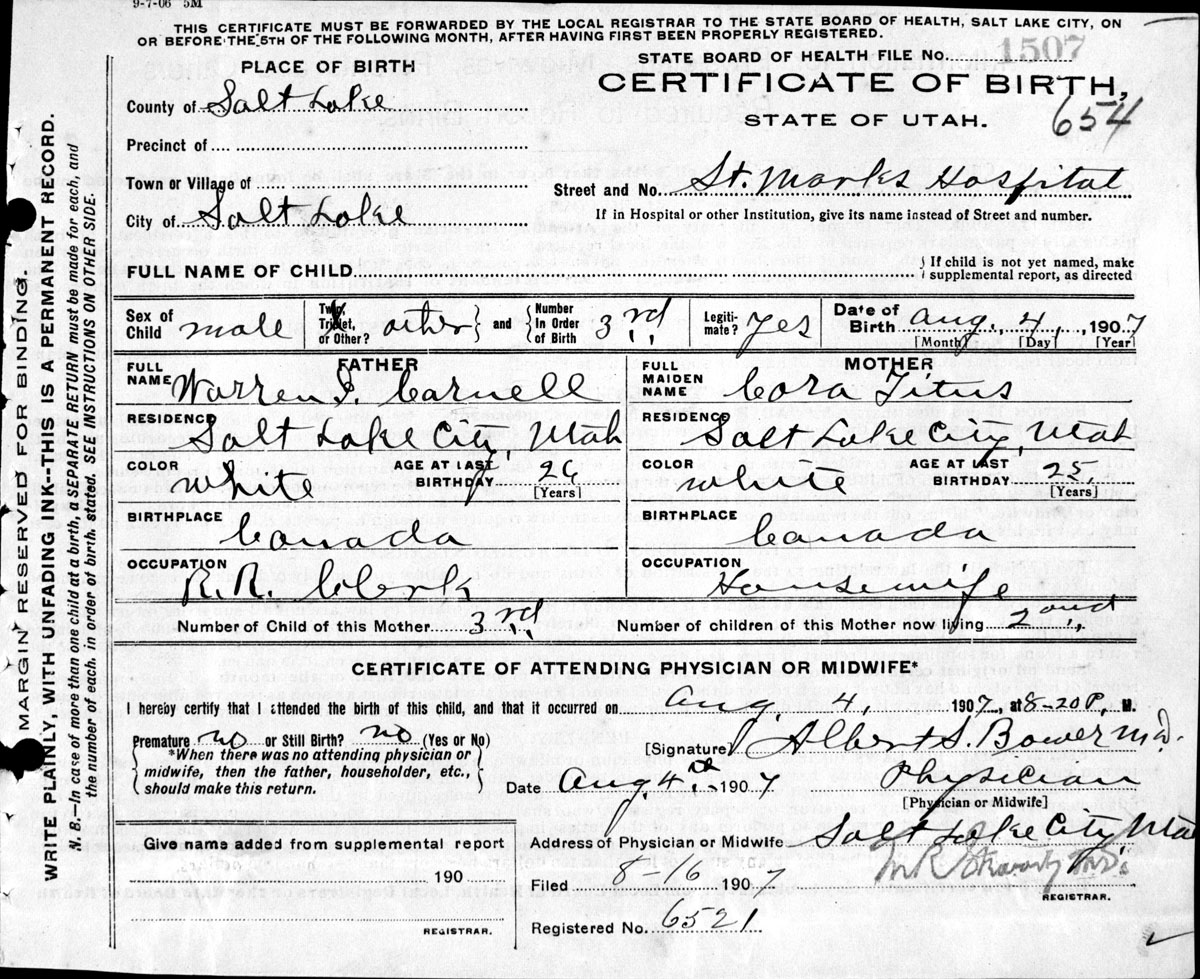 9-7-06 5M
THIS CERTIFICATE MUST BE FORWARDED BY THE LOCAL REGISTRAR TO THE STATE BOARD OF HEALTH, SALT LAKE CITY, ON
OR BEFORE THE 5TH OF THE FOLLOWING MONTH, AFTER HAVING FIRST BEEN PROPERLY REGISTERED.
MARGIN RESERVED FOR BINDING.
WRITE PLAINLY, WITH UNFADING INK--THIS IS A PERMANENT RECORD.
N. B.—In case of more than one child at a birth, a SEPARATE RETURN must be made for each, and
the number of each, in order of birth, stated. SEE INSTRUCTIONS ON OTHER SIDE.
PLACE OF BIRTH
County of Salt Lake
Precinct of
Town or Village of
City of Salt Lake
STATE BOARD OF HEALTH FILE No. 1507
CERTIFICATE OF BIRTH,
STATE OF UTAH.
654
Street and No. St. Marks Hospital
If in Hospital or other Institution, give its name instead of Street and number.
FULL NAME OF CHILD
{ If child is not yet named, make
supplemental report, as directed
Sex of Child male
Twin, Triplet, or Other? other } and { Number In Order of Birth 3rd
Legitimate? Yes
Date of Birth Aug., 4, 1907
[Month] [Day] [Year]
FATHER
FULL NAME Warren J. Carnell
RESIDENCE Salt Lake City, Utah
COLOR White AGE AT LAST BIRTHDAY 26 [Years]
BIRTHPLACE Canada
OCCUPATION R.R. Clerk
MOTHER
FULL MAIDEN NAME Cora Titus
RESIDENCE Salt Lake City, Utah
COLOR White AGE AT LAST BIRTHDAY 25 [Years]
BIRTHPLACE Canada
OCCUPATION Housewife
Number of Child of this Mother 3rd Number of children of this Mother now living 2 ond
CERTIFICATE OF ATTENDING PHYSICIAN OR MIDWIFE*
I hereby certify that I attended the birth of this child, and that it occurred on Aug 4, 1907, at 8-20 P. M.
Premature no or Still Birth? no (Yes or No)
*When there was no attending physician or
midwife, then the father, householder, etc.,
should make this return.
[Signature] Albert S. Bower M.D.
Date Aug. 4th 1907 Physician
[Physician or Midwife]
Give name added from supplemental report
190
REGISTRAR.
Address of Physician or Midwife Salt Lake City, Utah
Filed 8-16 1907
REGISTRAR.
Registered No. 6521